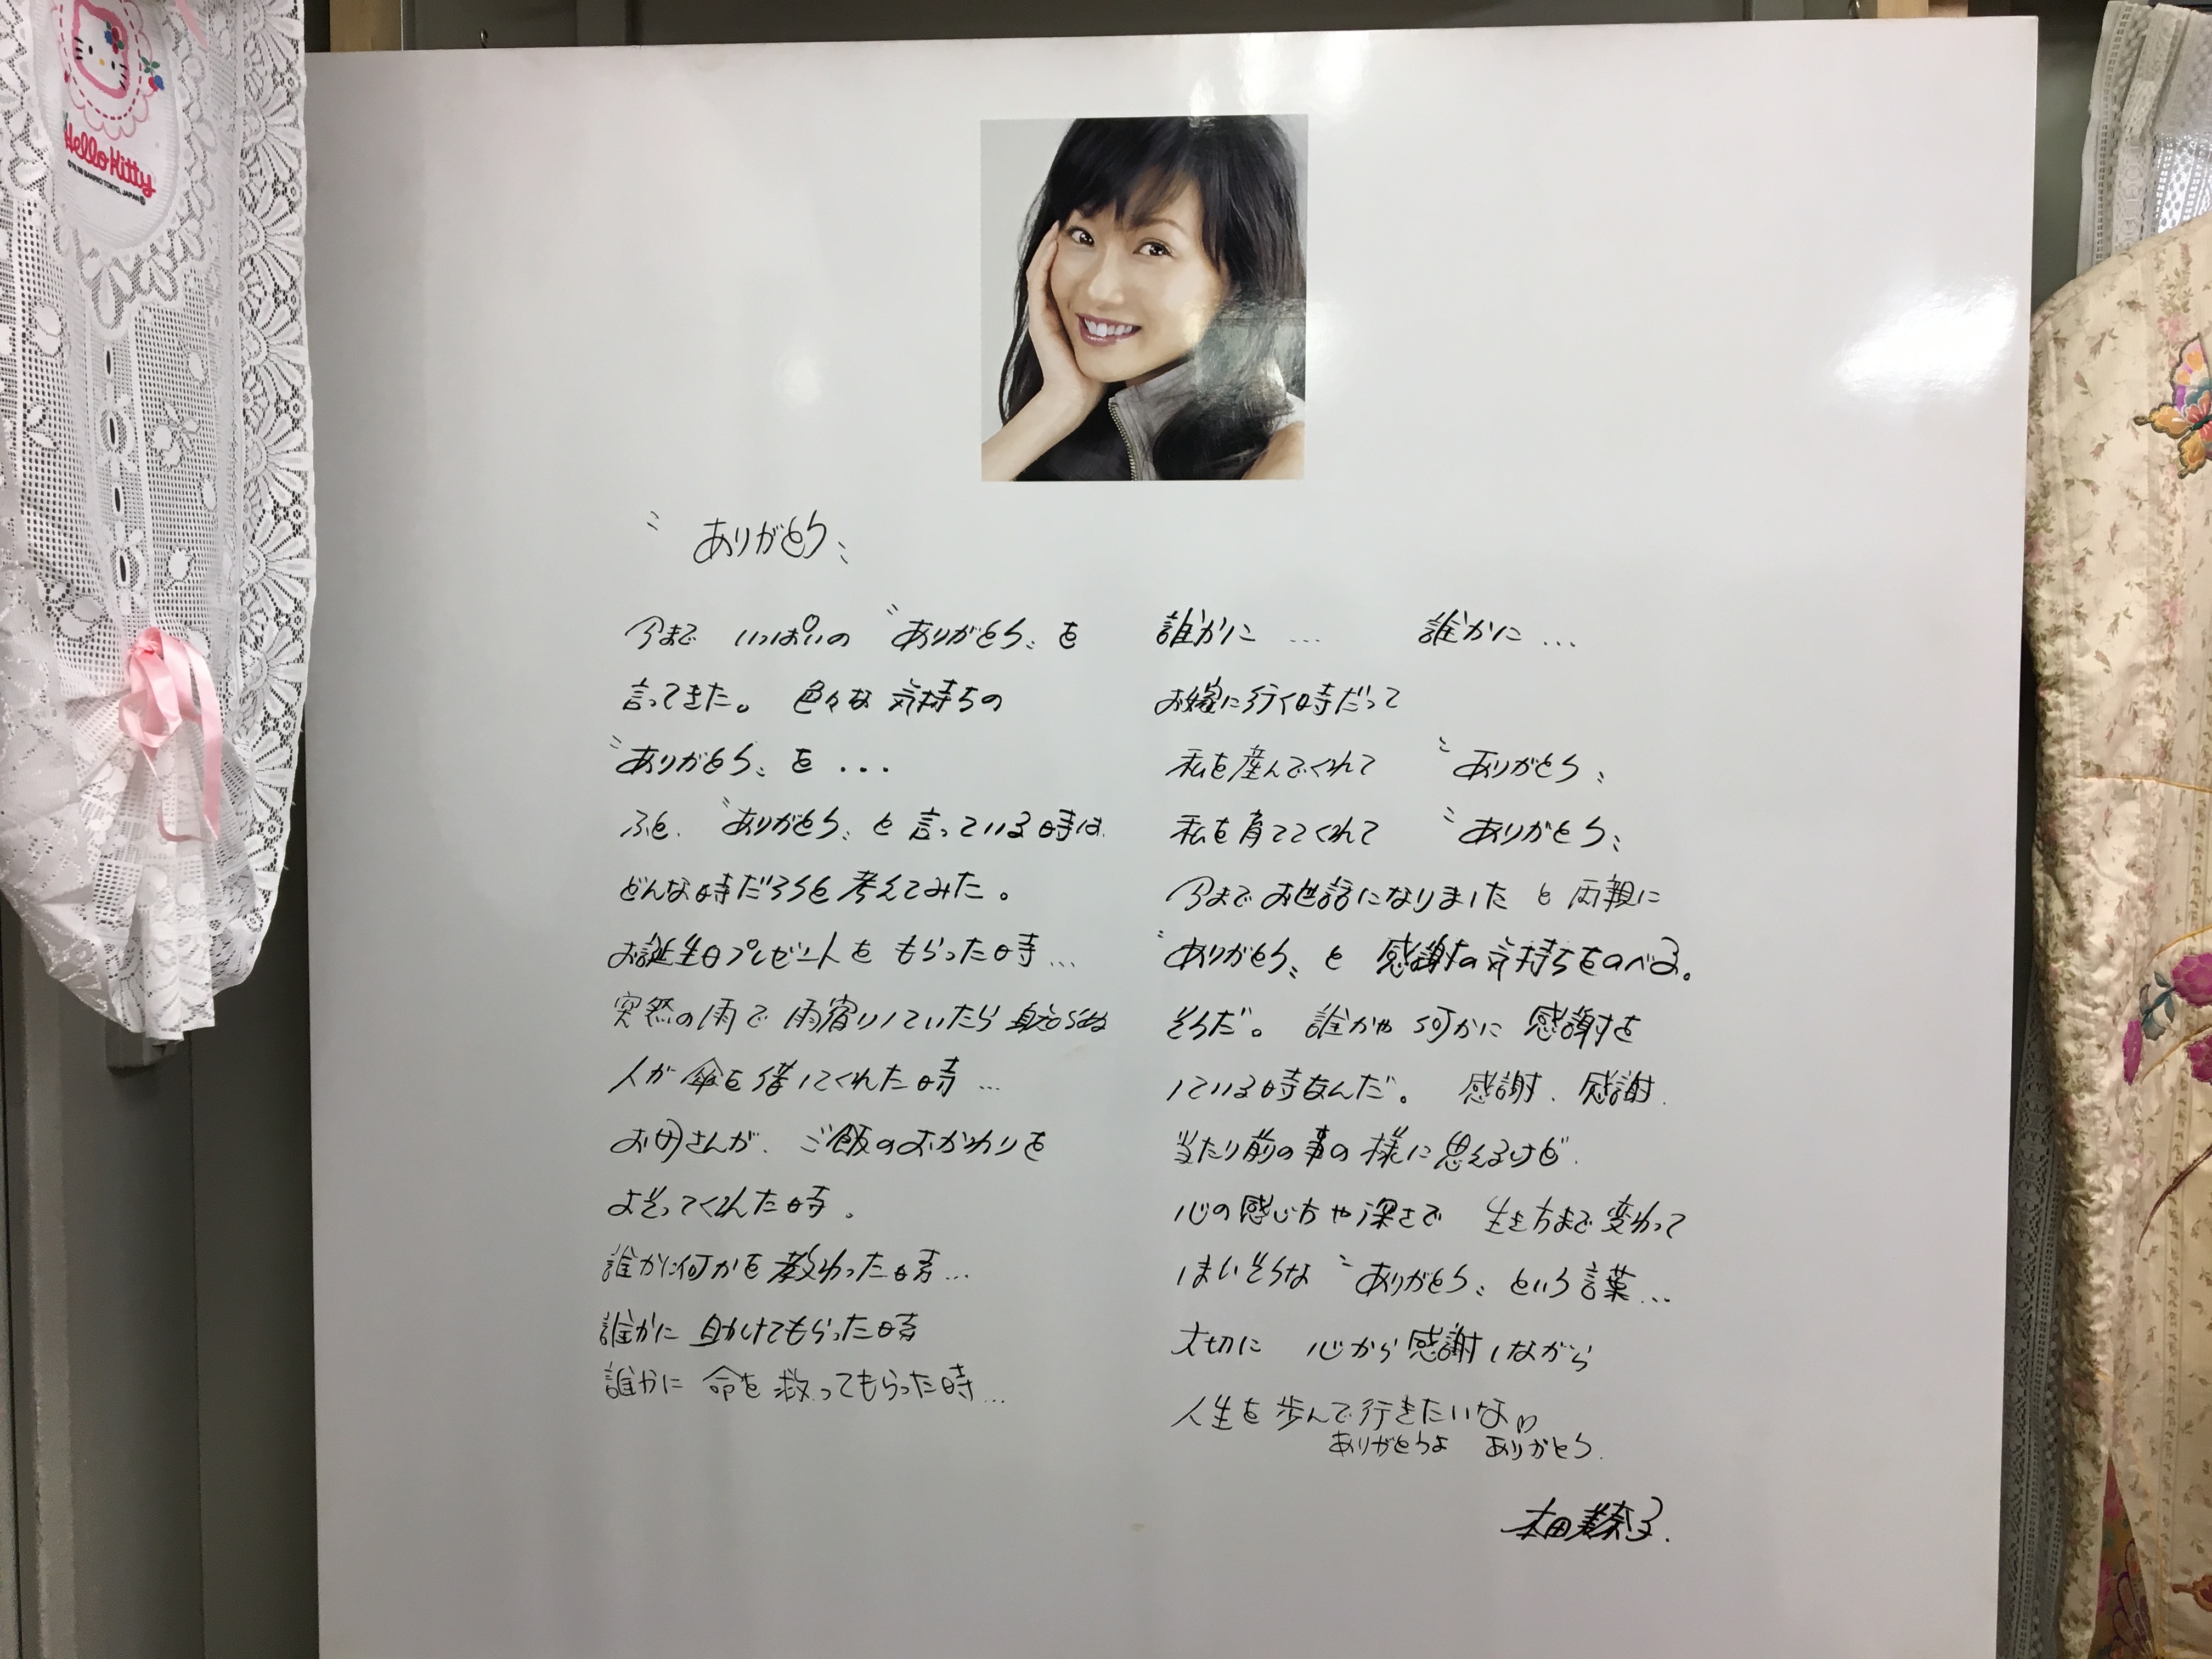 Hello Kitty
〝ありがとう〟
今まで いっぱいの 〝ありがとう〟を
言ってきた。 色々な 気持ちの
〝ありがとう〟を ...
ふと、〝ありがとう〟と 言っている時は、
どんな時だろうと 考えてみた。
お誕生日プレゼントを もらった時...
突然の雨で 雨宿りしていたら 見知らぬ
人が 傘を 借してくれた時...
お母さんが、ご飯のおかわりを
よそってくれた時。
誰かに何かを 教わった時...
誰かに 助けてもらった時
誰かに 命を 救ってもらった時...
誰かに ... 誰かに ...
お嫁に行く時だって
私を産んでくれて 〝ありがとう〟
私を育ててくれて 〝ありがとう〟
今まで お世話になりました と 両親に
〝ありがとう〟と 感謝の気持ちをのべる。
そうだ。 誰かや 何かに 感謝を
している時なんだ。 感謝、感謝、
当たり前の事の 様に思えるけど、
心の感じ方や深さで 生き方まで 変わって
しまいそうな 〝ありがとう〟という言葉...
大切に 心から 感謝しながら
人生を 歩んで行きたいな
ありがとうよ ありがとう.
本田美奈子.